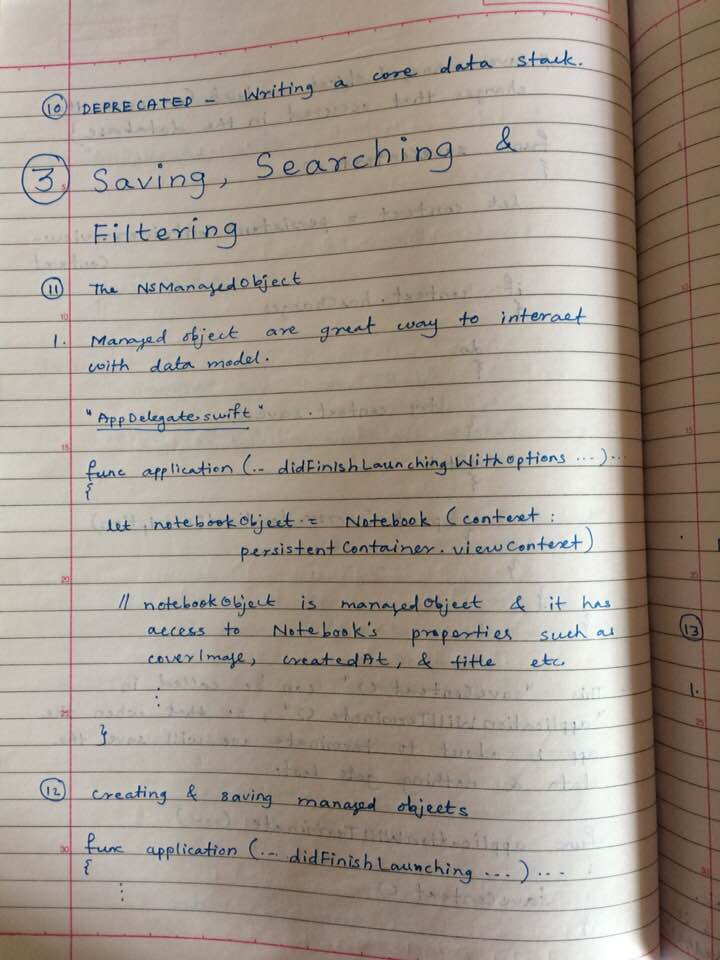 10 DEPRECATED - Writing a core data stack.
3 Saving, Searching &
Filtering
11 The NSManagedObject
1. Managed object are great way to interact
with data model.
"AppDelegate.swift"
func application (... didFinishLaunchingWithOptions ...) ...
{
let notebookObject = Notebook (context :
persistentContainer.viewContext)
// notebookObject is managedObject & it has
access to Notebook's properties such as
coverImage, createdAt, & title etc.
⋮
}
12 creating & saving managed objects
func application (... didFinishLaunching ...) ...
{
⋮
13
1.